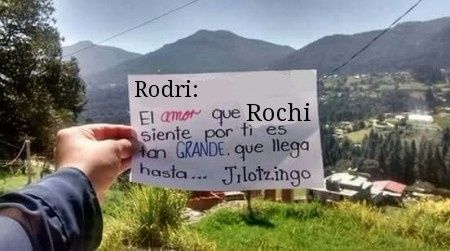 Rodri:
El amor que Rochi
siente por ti es
tan GRANDE. que llega
hasta... Jilotzingo